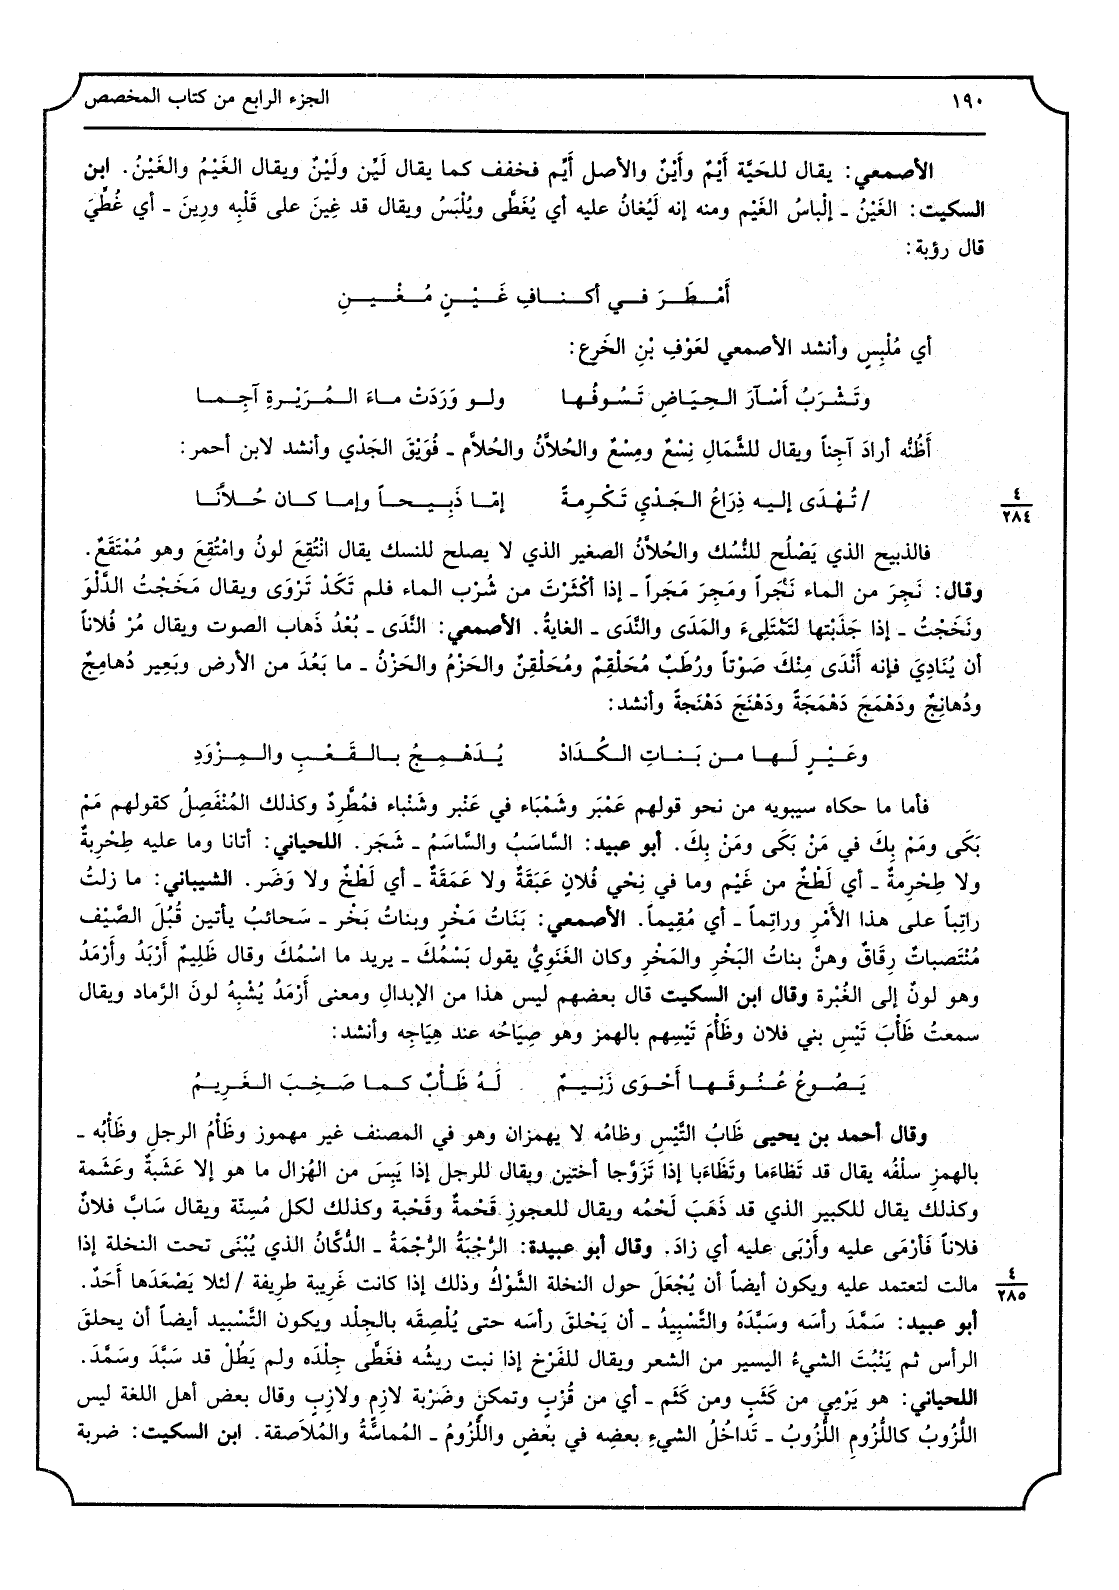 ١٩٠ الجزء الرابع من كتاب المخصص
الأصمعي: يقال للحَيَّة أَيْمٌ وأَيْنٌ والأصل أَيِّم فخفف كما يقال لَيِّن ولَيْنٌ ويقال الغَيْمُ والغَيْنُ. ابن
السكيت: الغَيْنُ ـ إلْباسُ الغَيْم ومنه إنه لَيُغانُ عليه أي يُغَطَّى ويُلْبَسُ ويقال قد غِينَ على قَلْبِه ورِينَ ـ أي غُطِّيَ
قال رؤبة:
أَمْـطَـرَ فـي أكـنـافِ غَـيْـنٍ مُـغْـيـنِ
أي مُلْبِسٍ وأنشد الأصمعي لعَوْفِ بْنِ الخَرِع:
وتَـشْـرَبُ أَسْـآرَ الـحِـيَـاضِ تَـسُـوفُـهـا ولـو وَرَدَتْ مـاءَ الـمُـرَيْـرةِ آجِـمـا
أَظُنُّه أرادَ آجِناً ويقال للشَّمَالِ نِسْعٌ ومِسْعٌ والحُلاَّنُ والحُلاَّم ـ فُوَيْقَ الجَدْي وأنشد لابن أحمر:
/ تُـهْـدَى إلـيـه ذِرَاعُ الـجَـدْيِ تَـكْـرِمـةً إمّـا ذَبِـيـحـاً وإمـا كـان حُـلاَّنَـا
٤
٢٨٤
فالذبيح الذي يَصْلُح للنُّسُك والحُلاَّنُ الصغير الذي لا يصلح للنسك يقال انْتُقِعَ لونُ وامْتُقِعَ وهو مُمْتَقَعٌ.
وقال: نَجِرَ من الماء نَجَراً ومَجِرَ مَجَراً ـ إذا أكْثَرْتَ من شُرْب الماء فلم تَكَدْ تَرْوَى ويقال مَخَجْتُ الدَّلْوَ
ونَخَجْتُ ـ إذا جَذَبْتها لتَمْتَلِىءَ والمَدَى والنَّدَى ـ الغاية. الأصمعي: النَّدَى ـ بُعْدُ ذَهاب الصوت ويقال مُرْ فُلاناً
أن يُنَادِيَ فإنه أَنْدَى مِنْكَ صَوْتاً ورُطَبٌ مُحَلْقِمٌ ومُحَلْقِنٌ والحَزْمُ والحَزْنُ ـ ما بَعُدَ من الأرض وبَعِير دُهامِجٌ
ودُهانِجٌ ودَهْمَجَ دَهْمَجَةً ودَهْنَجَ دَهْنَجةً وأنشد:
وعَـيْـرٍ لَـهـا مـن بَـنـاتِ الـكُـدَادْ يُـدَهْـمِـجُ بـالـقَـعْـبِ والـمِـزْوَدِ
فأما ما حكاه سيبويه من نحو قولهم عَمْبَر وشَمْبَاء في عَنْبر وشَنْباء فمُطَّرِدٌ وكذلك المُنْفَصِلُ كقولهم مَمْ
بَكَى ومَمْ بِكَ في مَنْ بَكَى ومَنْ بِكَ. أبو عبيد: السَّاسَبُ والسَّاسَمُ ـ شَجَر. اللحياني: أتانا وما عليه طِحْرِبةٌ
ولا طِحْرِمةٌ ـ أي لَطْخٌ من غَيْم وما في نِحْي فُلانٍ عَبَقَةٌ ولا عَمَقَةٌ ـ أي لَطْخٌ ولا وَضَر. الشيباني: ما زلتُ
راتِباً على هذا الأَمْرِ وراتِماً ـ أي مُقِيماً. الأصمعي: بَنَاتُ مَخْرٍ وبناتُ بَخْر ـ سَحائبُ يأتين قُبُلَ الصَّيْف
مُنْتَصباتٌ رِقَاقٌ وهنَّ بناتُ البَخْرِ والمَخْرِ وكان الغَنَوِيُّ يقول بَسْمُكَ ـ يريد ما اسْمُكَ وقال ظَلِيمٌ أَرْبَدُ وأَرْمَدُ
وهو لونٌ إلى الغُبْرة وقال ابن السكيت قال بعضهم ليس هذا من الإبدالِ ومعنى أَرْمَدُ يُشْبِهُ لونَ الرَّماد ويقال
سمعتُ ظَأْبَ تَيْسِ بني فلان وظَأْمَ تَيْسِهم بالهمز وهو صِيَاحُه عند هِيَاجِه وأنشد:
يَـصُـوعُ عُـنُـوقَـهـا أَحْـوَى زَنِـيـمٌ لَـهُ ظَـأْبٌ كـمـا صَـخِـبَ الـغَـرِيـمُ
وقال أحمد بن يحيى ظَابُ التَّيْسِ وظامُه لا يهمزان وهو في المصنف غير مهموز وظَأْمُ الرجلِ وظَأْبُه ـ
بالهمزِ سلْفُه يقال قد تَظاءَما وتَظَاءَبا إذا تَزَوَّجا أختين ويقال للرجل إذا يَبِسَ من الهُزال ما هو إلا عَشَبَةٌ وعَشَمة
وكذلك يقال للكبير الذي قد ذَهَبَ لَحْمُه ويقال للعجوزِ قَحْمةٌ وقَحْبة وكذلك لكل مُسِنّة ويقال سَابَّ فلانٌ
فلاناً فَأَرْمَى عليه وأَرْبَى عليه أي زادَ. وقال أبو عبيدة: الرُّجْبَةُ الرُّجْمَةُ ـ الدُّكَّانُ الذي يُبْنَى تحت النخلة إذا
مالت لتعتمد عليه ويكون أيضاً أن يُجْعَلَ حول النخلة الشَّوْكُ وذلك إذا كانت غَرِيبة طَرِيفة / لئلا يَصْعَدَها أَحَدٌ.
٤
٢٨٥
أبو عبيد: سَمَّدَ رأسَه وسَبَّدَهُ والتَّسْبِيدُ ـ أن يَحْلقَ رأسَه حتى يُلْصِقَه بالجِلْد ويكون التَّسْبيد أيضاً أن يحلقَ
الرأس ثم يَنْبُتَ الشيءُ اليسير من الشعر ويقال للفَرْخ إذا نبت ريشُه فغَطَّى جِلْدَه ولم يَطُلْ قد سَبَّدَ وسَمَّدَ.
اللحياني: هو يَرْمِي من كَثَبٍ ومن كَثَم ـ أي من قُرْبٍ وتمكنٍ وضَرْبة لازِمٍ ولازِبٍ وقال بعض أهل اللغة ليس
اللُّزُوبُ كاللُّزُومِ اللُّزُوبُ ـ تَداخُلُ الشيءِ بعضِه في بعْضٍ واللُّزُومُ ـ المُماسَّةُ والمُلاَصقة. ابن السكيت: ضربة